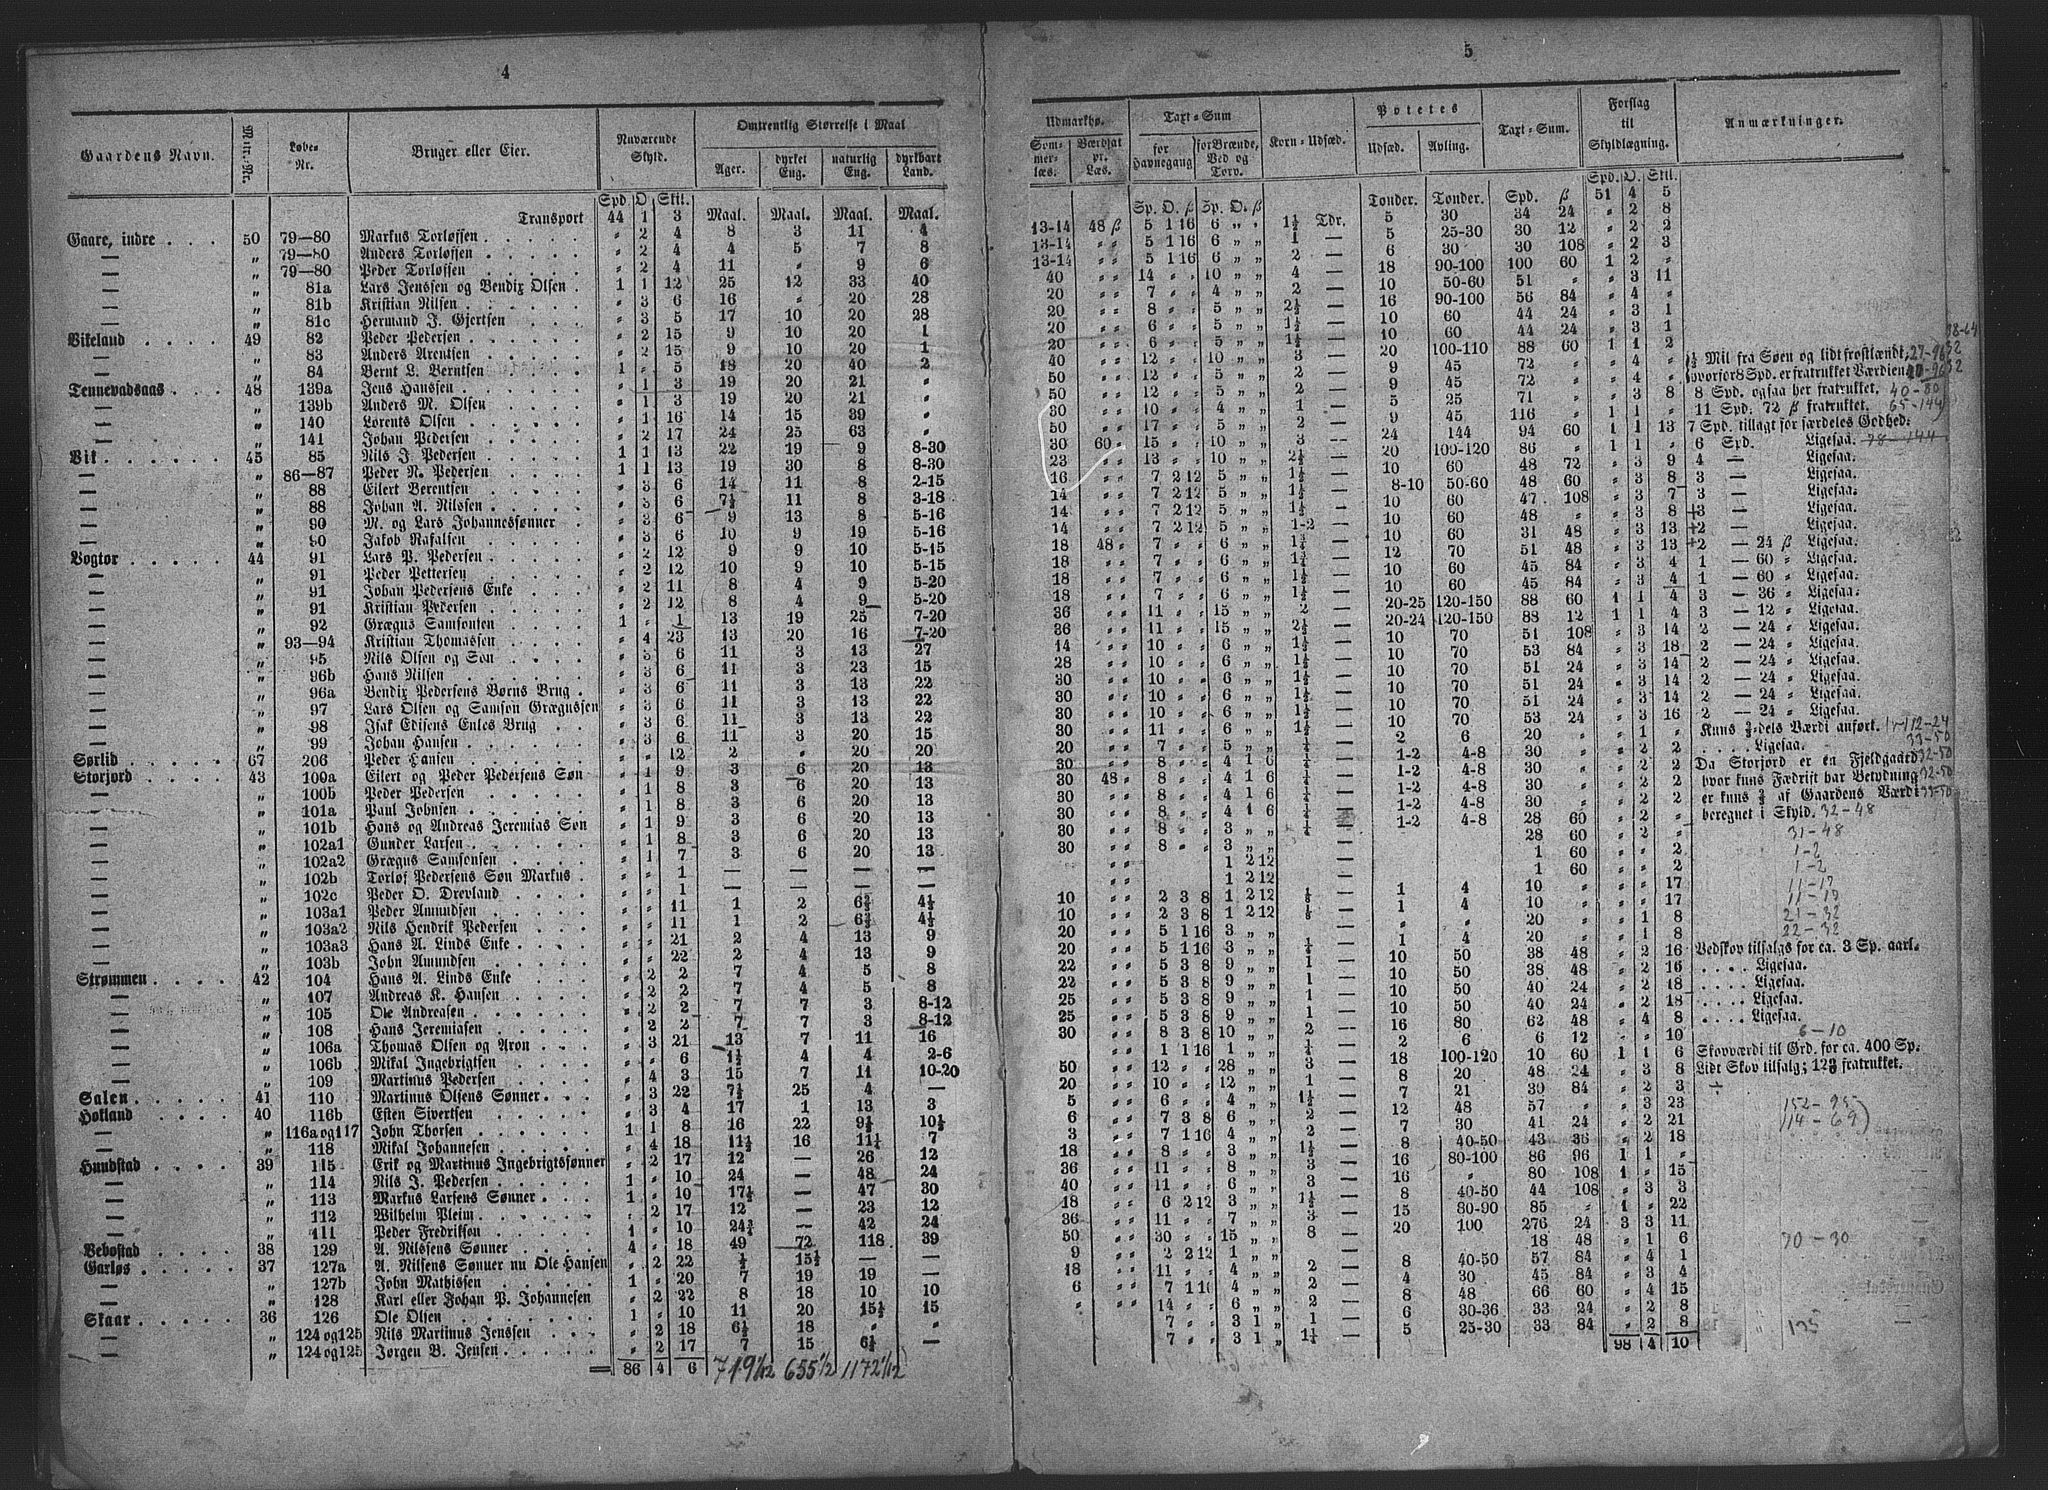 4
Gaardens Navn. Mtr.-Nr. Løbe-Nr. Bruger eller Eier. Nuværende Skyld. Omtrentlig Størrelse i Maal
Ager. dyrket Eng. naturlig Eng. dyrkbart Land.
Spd. O. Skil.
Transport 44 1 3 Maal. Maal. Maal. Maal.
Gaare, indre . . . 50 79—80 Markus Torløffen . . . . . „ 2 4 8 3 11 4
— „ 79—80 Anders Torløffen . . . . . „ 2 4 4 5 7 8
— „ 79—80 Peder Torløffen . . . . . „ 2 4 11 „ 9 6
— „ 81a Lars Jenssen og Bendix Olsen . 1 1 12 25 12 33 40
— „ 81b Kristian Nilsen . . . . . „ 3 6 16 „ 20 28
— „ 81c Hermand J. Gjertsen . . . „ 3 5 17 10 20 28
Vikeland . . . . 49 82 Peder Pedersen . . . . . „ 2 15 9 10 20 1
— „ 83 Anders Arentsen . . . . . „ 2 15 9 10 20 1
— „ 84 Bernt L. Berntsen . . . . 1 „ 5 18 20 40 2
Tennevadsaas . . . 48 139a Jens Hanssen . . . . . „ 1 3 19 20 21 „
— „ 139b Anders M. Olsen . . . . „ 1 3 19 20 21 „
— „ 140 Lorents Olsen . . . . . „ 1 16 14 15 39 „
— „ 141 Johan Pedersen . . . . . „ 2 17 24 25 63 „
Vik . . . . . . 45 85 Nils J. Pedersen . . . . 1 1 13 22 19 9 8-30
— „ 86—87 Peder N. Pedersen . . . . 1 1 13 19 30 8 8-30
— „ 88 Eilert Berentsen . . . . . „ 3 6 14 11 8 2-15
— „ 88 Johan A. Nilssen . . . . „ 3 6 7½ 11 8 3-18
— „ 90 M. og Lars Johannessønner . „ 3 6 9 13 8 5-16
— „ 90 Jakob Rafalsen . . . . . „ 3 6 10 9 19 5-16
Vogtor . . . . . 44 91 Lars P. Pedersen . . . . „ 2 12 9 9 10 5-15
— „ 91 Peder Pettersen . . . . . „ 2 12 10 9 10 5-15
— „ 91 Johan Pedersens Enke . . . „ 2 11 8 4 9 5-20
— „ 91 Kristian Pedersen . . . . „ 2 12 8 4 9 5-20
— „ 92 Grægus Samfonsen . . . . 1 „ 1 13 19 25 7-20
— „ 93—94 Kristian Thomassen . . . . „ 4 23 13 20 16 7-20
— „ 95 Nils Olsen og Søn . . . . „ 3 6 11 3 13 27
— „ 96b Hans Nilsen . . . . . „ 3 6 11 3 23 15
— „ 96a Bendix Pedersens Børns Brug . „ 3 6 11 3 13 22
— „ 97 Lars Olsen og Samson Grægussen „ 3 6 11 3 13 22
— „ 98 Isak Edisens Enkes Brug . . „ 3 6 11 3 13 22
— „ 99 Johan Hansen . . . . . „ 3 6 11 3 20 15
Sørlid . . . . . 67 206 Peder Hansen . . . . . „ „ 12 2 „ 20 20
Storjord . . . . 43 100a Eilert og Peder Pedersens Søn „ 1 9 3 6 20 13
— „ 100b Peder Pedersen . . . . . „ 1 8 3 6 20 13
— „ 101a Paul Johnsen . . . . . „ 1 8 3 6 20 13
— „ 101b Hans og Andreas Jeremias Søn „ 1 9 3 6 20 13
— „ 102a1 Gunder Larsen . . . . . „ 1 8 3 6 20 13
— „ 102a2 Grægus Samsonsen . . . . „ 1 7 3 6 20 13
— „ 102b Torløf Pedersens Søn Markus . „ „ 1 — — — —
— „ 102c Peder O. Drevland . . . . „ „ 1 — — — —
— „ 103a1 Peder Amundsen . . . . . „ „ 11 1 2 4½
— „ 103a2 Nils Hendrik Pedersen . . . „ „ 11 1 2 4½
— „ 103a3 Hans A. Linds Enke . . . . „ „ 21 2 4 13 9
— „ 103b John Amundsen . . . . . „ „ 22 2 4 13 9
Strømmen . . . . 42 104 Hans A. Linds Enke . . . „ 2 2 7 4 5 8
— „ 107 Andreas K. Hansen . . . . „ 2 2 7 4 5 8
— „ 105 Ole Andreasen . . . . . „ 2 2 7 7 3 8-12
— „ 108 Hans Jeremiasen . . . . . „ 2 2 7 7 3 8-12
— „ 106a Thomas Olsen og Aron . . . „ 3 21 13 7 11 16
— „ 106b Mikal Ingebrigtsen . . . . „ „ 6 1½ 4 4 2-6
— „ 109 Martinus Pedersen . . . . „ 4 3 15 7 11 10-20
Salen . . . . . 41 110 Martinus Olsens Sønner . . . „ 3 22 7½ 25 4 —
Høtland . . . . 40 116b Esten Sivertsen . . . . . „ 3 4 17 1 13 3
— „ 116a og 117 John Thorsen . . . . . 1 1 8 16 22 9½ 10½
— „ 118 Mikal Johannesen . . . . „ 4 18 11½ 16 11½ 7
Hundstad . . . . 39 115 Erik og Martinus Ingebrigtsønner „ 2 17 12 — 26 12
— „ 114 Nils J. Pedersen . . . . 1 „ 10 24 — 48 24
— „ 113 Markus Larsens Sønner . . . 1 „ 10 17½ — 47 30
— „ 112 Wilhelm Pleim . . . . . „ 2 17 12 — 23 12
— „ 111 Peder Fredriksøn . . . . . 1 „ 10 24¾ — 42 24
Vebostad . . . . 38 129 A. Nilssens Sønner . . . . 4 „ 18 49 72 118 39
Garløs . . . . . 37 127a A. Nilsens Sønner nu Ole Hansen „ 2 22 ½ 15½ — —
— „ 127b John Mathissen . . . . . 1 „ 20 7 19 19 —
— „ 128 Karl eller Johan P. Johannesen „ 2 22 8 18 10 10
Skaar . . . . . 36 126 Ole Olsen . . . . . . 1 „ 10 11 20 15½ 15
— „ 124og125 Nils Martinus Jenssen . . . „ 2 18 6½ 18 „ „
— „ 124og125 Jørgen B. Jensen . . . . . „ 2 17 7 15 6½ —
86 4 6 719 1/12 655 1/2 1172 1/12
5
Udmarkhø. Taxt-Sum Korn-Udsæd. Potetes Taxt-Sum. Forslag til Skyldlægning. Anmærkninger.
Sommerlæs. Værdsat pr. Læs. for Havnegang for Brænde, Ved og Torv. Udsæd. Avling.
Sp. O. ß Sp. O. ß Tdr. Tønder. Tønder. Spd. ß Spd. O. Skil.
51 4 5
13-14 48 ß 5 1 16 6 „ „ 1½ Tdr. 5 30 34 24 „ 2 8
13-14 „ „ 5 1 16 6 „ „ 1 — 5 25-30 30 12 „ 2 2
13-14 „ „ 5 1 16 6 „ „ 2 — 6 30 30 108 „ 2 3
40 „ „ 14 „ „ 10 „ „ 4 — 18 90-100 100 60 1 2 „
20 „ „ 7 „ „ 4 „ „ 2 — 10 50-60 51 „ „ 3 11
20 „ „ 8 „ „ 5 „ „ 2½ — 16 90-100 56 84 „ 4 „
20 „ „ 6 „ „ 5 „ „ 1½ — 10 60 44 24 „ 3 1
20 „ „ 6 „ „ 5 „ „ 1½ — 10 60 44 24 „ 3 1
40 „ „ 12 „ „ 10 „ „ 3 — 20 100-110 88 60 1 1 2
50 „ „ 12 „ „ 5 „ „ 2 — 9 45 72 „ „ 4 „ ½ Mil fra Søen og lidt frostlændt,
50 „ „ 12 „ „ 5 „ „ 2 — 9 45 72 „ „ 4 „ hvorfor 8 Spd. er fratrukket Værdien
30 „ „ 10 „ „ 4 „ „ 1 — 5 25 71 „ „ 3 8 8 Spd. ogsaa her fratrukket. 40-80
50 „ „ 17 „ „ 5 „ „ 2 — 9 45 116 „ 1 1 „ 11 Spd. 72 ß fratrukket. 65-144
30 60 „ 15 „ „ 10 „ „ 3 — 24 144 94 60 1 1 13 7 Spd. tillagt for særdeles Godhed.
23 „ „ 13 „ „ 10 „ „ 2½ — 20 100-120 86 „ 1 1 „ 6 Spd. Ligesaa. 78-144
16 „ „ 7 2 12 5 „ „ 1½ — 10 60 48 72 „ 3 9 4 — Ligesaa.
14 „ „ 7 2 12 5 „ „ 1½ — 8-10 50-60 48 60 „ 3 8 3 — Ligesaa.
14 „ „ 7 2 12 5 „ „ 1½ — 10 60 47 108 „ 3 7 3 — Ligesaa.
14 „ „ 7 2 12 5 „ „ 1-2 — 10 60 48 „ „ 3 8 3 — Ligesaa.
18 48 „ 7 „ „ 6 „ „ — 10 60 31 48 „ 3 13 2 — Ligesaa.
18 „ „ 7 „ „ 6 „ „ — 12 70 51 48 „ 3 13 2 — 24 ß Ligesaa.
18 „ „ 7 „ „ 6 „ „ 1½ — 10 60 45 84 „ 3 4 1 — 60 „ Ligesaa.
18 „ „ 7 „ „ 6 „ „ 1½ — 10 60 45 84 „ 3 4 1 — 60 „ Ligesaa.
36 „ „ 11 „ „ 15 „ „ 2 — 20-25 120-150 88 60 1 1 4 3 — 36 „ Ligesaa.
36 „ „ 11 „ „ 15 „ „ 2½ — 20-24 120-150 88 12 1 1 4 3 — 12 „ Ligesaa.
14 „ „ 10 „ „ 6 „ „ 1½ — 10 70 51 108 „ 3 14 2 — 24 „ Ligesaa.
28 „ „ 10 „ „ 6 „ „ 1½ — 10 70 53 84 „ 3 18 2 — 24 „ Ligesaa.
30 „ „ 10 „ „ 6 „ „ 1½ — 10 70 51 24 „ 3 14 2 — 24 „ Ligesaa.
30 „ „ 10 „ „ 6 „ „ 1½ — 10 70 51 24 „ 3 14 2 — 24 „ Ligesaa.
30 „ „ 10 „ „ 6 „ „ 1½ — 10 70 51 24 „ 3 14 2 — 24 „ Ligesaa.
30 „ „ 11 „ „ 6 „ „ 1½ — 10 70 53 24 „ 3 16 2 — 24 „ Ligesaa.
20 „ „ 7 „ „ 5 „ „ 2 6 20 „ „ 1 „ Kuns ⅔-dels Værdi anført. 12-24
30 48 „ 8 „ „ 4 1 6 ¼ — 1-2 4-8 30 „ „ 2 2 . . . . Ligesaa. 33-50
30 „ „ 8 „ „ 4 1 6 ¼ — 1-2 4-8 30 „ „ 2 2 Da Storjord er en Fjeldgaard 32-50
30 „ „ 8 „ „ 4 1 6 ¼ — 1-2 4-8 30 „ „ 2 2 hvor kuns Fædrift har Betydning 32-50
30 „ „ 8 „ „ 4 1 6 ¼ — 1-2 4-8 30 „ „ 2 2 er kuns ⅔ af Gaardens Værdi 33-50
30 „ „ 8 „ „ 3 „ „ ¼ — 1-2 4-8 28 60 „ 2 „ beregnet i Skyld. 32-48
30 „ „ 8 „ „ 3 „ „ 28 60 „ 2 „ 31-48
„ „ 1 2 12 1 60 „ „ 2 1-2
„ „ 1 2 12 1 60 „ „ 2 1-2
10 „ „ 2 3 8 1 2 12 ⅛ — 1 4 10 „ „ „ 17 11-17
10 „ „ 2 3 8 1 2 12 ⅛ — 1 4 10 „ „ „ 17 11-18
20 „ „ 5 1 16 3 „ „ „ „ 20 „ „ 1 8 21-32
20 „ „ 5 1 16 3 „ „ — 1 4 20 „ „ 1 8 22-32
22 „ „ 5 3 8 9 „ „ 1 — 10 50 38 48 „ 2 16 Vedskov tilsalgs for ca. 3 Sp. aarl.
22 „ „ 5 3 8 9 „ „ 1 — 10 50 38 48 „ 2 16 . . . . Ligesaa.
25 „ „ 5 3 8 9 „ „ 1 — 10 50 40 24 „ 2 18 . . . . Ligesaa.
25 „ „ 5 3 8 9 „ „ 1 — 10 50 40 24 „ 2 18 . . . . Ligesaa.
30 „ „ 8 3 8 10 „ „ 2 — 16 80 62 48 „ 4 8 . . . . Ligesaa.
„ „ 1 1 16 1 „ „ ¼ — 2 6 6 12 „ „ 10 6-10
50 „ „ 12 „ „ 28 „ „ 3 — 18 100-120 10 60 1 1 6 Skovværdi til Grd. for ca. 400 Sp.
20 „ „ 10 „ „ 12 „ „ 1 — 8 20 48 24 „ 3 8 Lidt Skov tilsalg; 123 fratrukket.
5 „ „ 6 „ „ 4 „ „ 1½ — 7 21 39 84 „ 2 3
6 „ „ 7 3 8 6 „ „ 2 — 12 48 57 „ „ 3 23 152-95
3 „ „ 7 1 16 4 „ „ 2 — 7 30 41 24 „ 2 21 114-69
18 „ „ 8 „ „ 3 „ „ 1½ — 8 40-50 43 36 „ 2 18
36 „ „ 11 „ „ 8 „ „ 3 — 16 80-100 86 96 1 1 „
40 „ „ 11 „ „ 6 „ „ 3 — 16 „ 80 108 1 „ 15
18 „ „ 6 2 12 3 „ „ 1½ — 8 40-50 44 108 „ 3 3
36 „ „ 11 „ „ 7 „ „ 3 — 15 80-90 85 „ 1 „ 22
50 „ „ 30 „ „ 15 „ „ 8 — 20 100 276 24 3 3 11
9 „ „ 2 2 12 1 „ „ 18 48 „ 1 6 70-30
18 „ „ 11 „ „ 4 „ „ 2 — 8 40-50 57 84 „ 4 1
6 „ „ 7 1 16 4 „ „ 2 — 4 30 45 84 „ 3 4
„ „ „ 14 „ „ 6 „ „ 2 — 8 48 66 60 „ 4 15
„ „ 7 „ „ 3 1 1 — 6 30-36 33 24 „ 2 8
„ „ 7 „ „ 3 1 1¼ — 5 25-30 33 84 „ 2 8
98 4 10